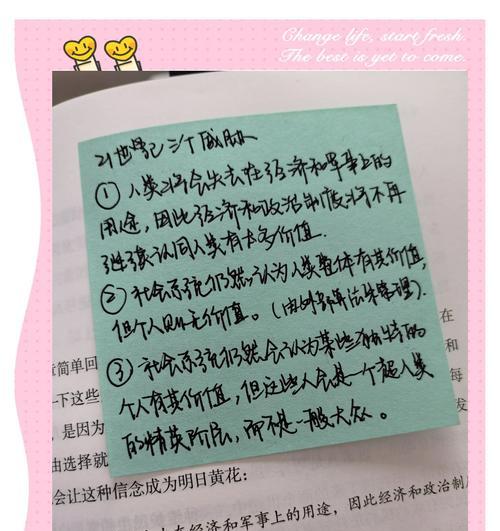 Change life, start fresh.
The best is yet to come.
21世纪三个威胁
① 人类将会失去在经济和军事上的
用途，因此经济和政治制度将不再
继续认同人类有太多价值.
② 社会系统仍然认为人类整体有其价值,
但个人则无价值。(由外部算法来管理).
③ 社会系统仍然会认为某些独特的
个人有其价值，但这些人会是一个超人类
的精英阶层，而不是一般大众。
章简单回
在
一下这些
和
是因为
每
由选择就
发
会让这种信念成为明日黄花：
在经济和军事上的用途，因此经济和政治制度